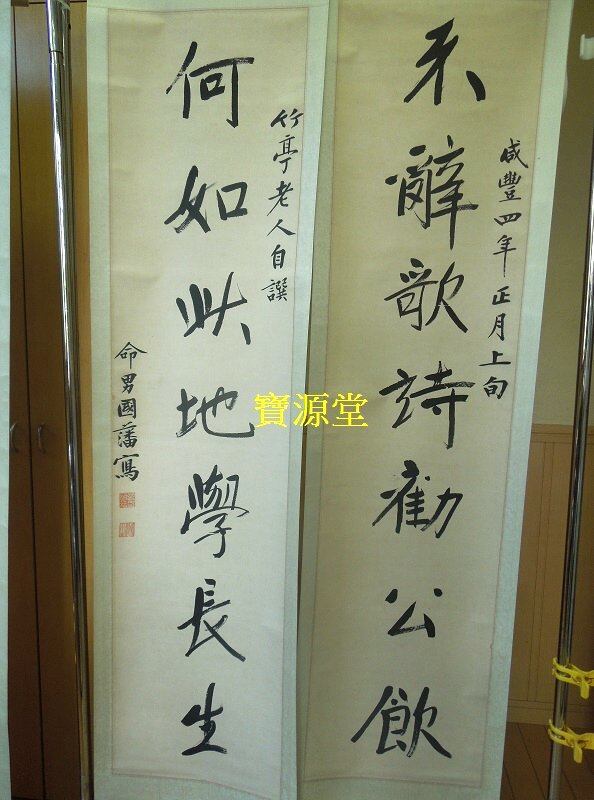 咸豐四年正月上旬
不辭歌詩勸公飲
竹亭老人自譔
何如此地學長生
命男國藩寫
寶源堂